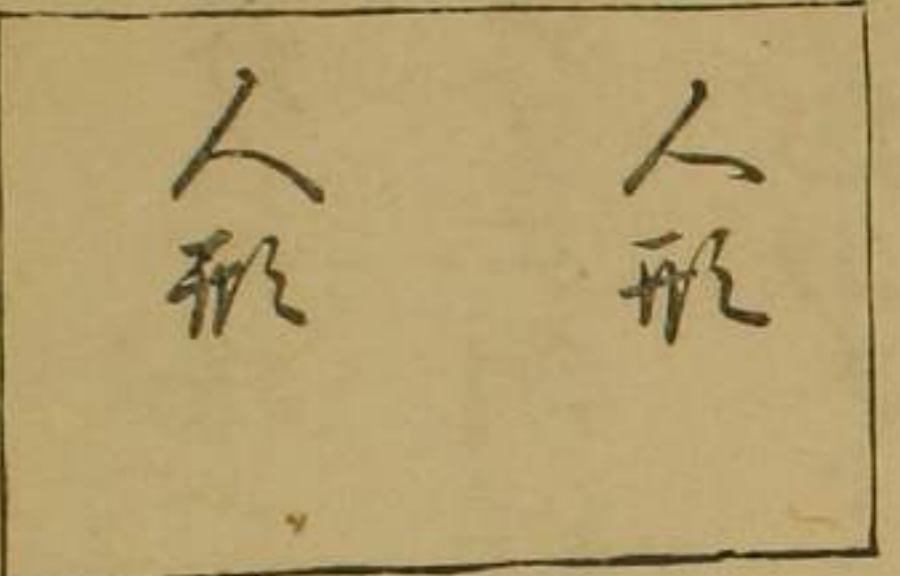 人形
人形